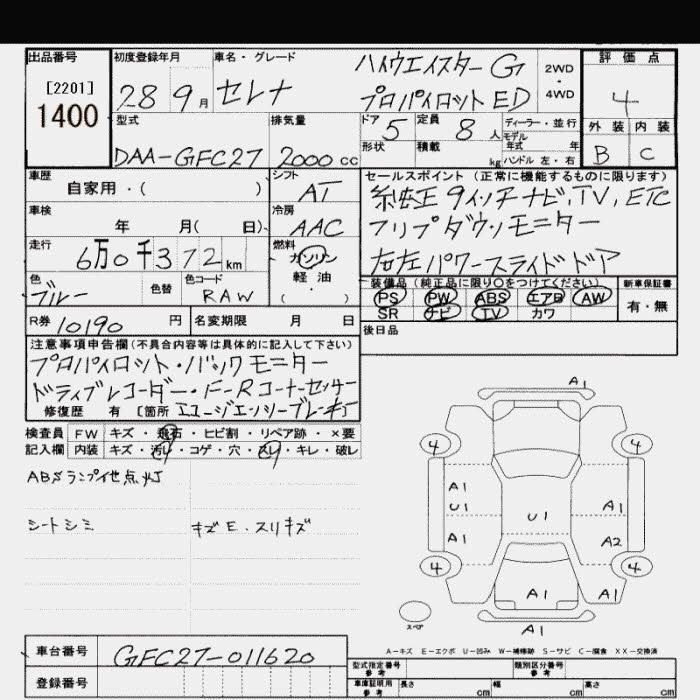 出品番号
[2201]
1400
初度登録年月
28 9月
車名・グレード
セレナ
ハイウエイスター G
プロパイロット ED
2WD
・
4WD
評価点
4
外装 内装
B C
型式
DAA-GFC27
排気量
2000 cc
ドア
5
定員
8 人
形状
積載
kg
ディーラー・並行
モデル
年式 年
ハンドル 左・右
車歴
自家用・( )
シフト
AT
車検
年 月( 日)
冷房
AAC
走行
6万0千372km
燃料
ガソリン
軽油
( ・ )
色
ブルー
色替
色コード
RAW
セールスポイント (正常に機能するものに限ります)
純正 9インチナビ, TV, ETC
フリップダウンモニター
左右パワースライドドア
装備品(純正品に限り○をつけてください)
PS PW ABS エアB AW
SR ナビ TV カワ
新車保証書
有・無
後日品
R券 10190 円
名変期限 月 日
注意事項申告欄(不具合内容等は具体的に記入して下さい)
プロパイロット・バックモニター
ドライブレコーダー・F-Rコーナーセンサー
修復歴 有 [箇所 エマージェンシーブレーキ]
検査員
記入欄
FW キズ・飛石・ヒビ割・リペア跡・×要
内装 キズ・汚れ・コゲ・穴・スレ・キレ・破レ
ABSランプ他点灯
シートシミ
キズE・スリキズ
A1
4 4
A1
U1
U1
A1
A1
A2
4 4
A1 A1
A1
スペア
A-キズ E-エクボ U-凹み W-補修跡 S-サビ C-腐食 XX-交換済
車台番号
GFC27-011620
登録番号
型式指定番号
参考
類別区分番号
参考
車庫証明用
参考
長さ cm 幅 cm 高さ cm